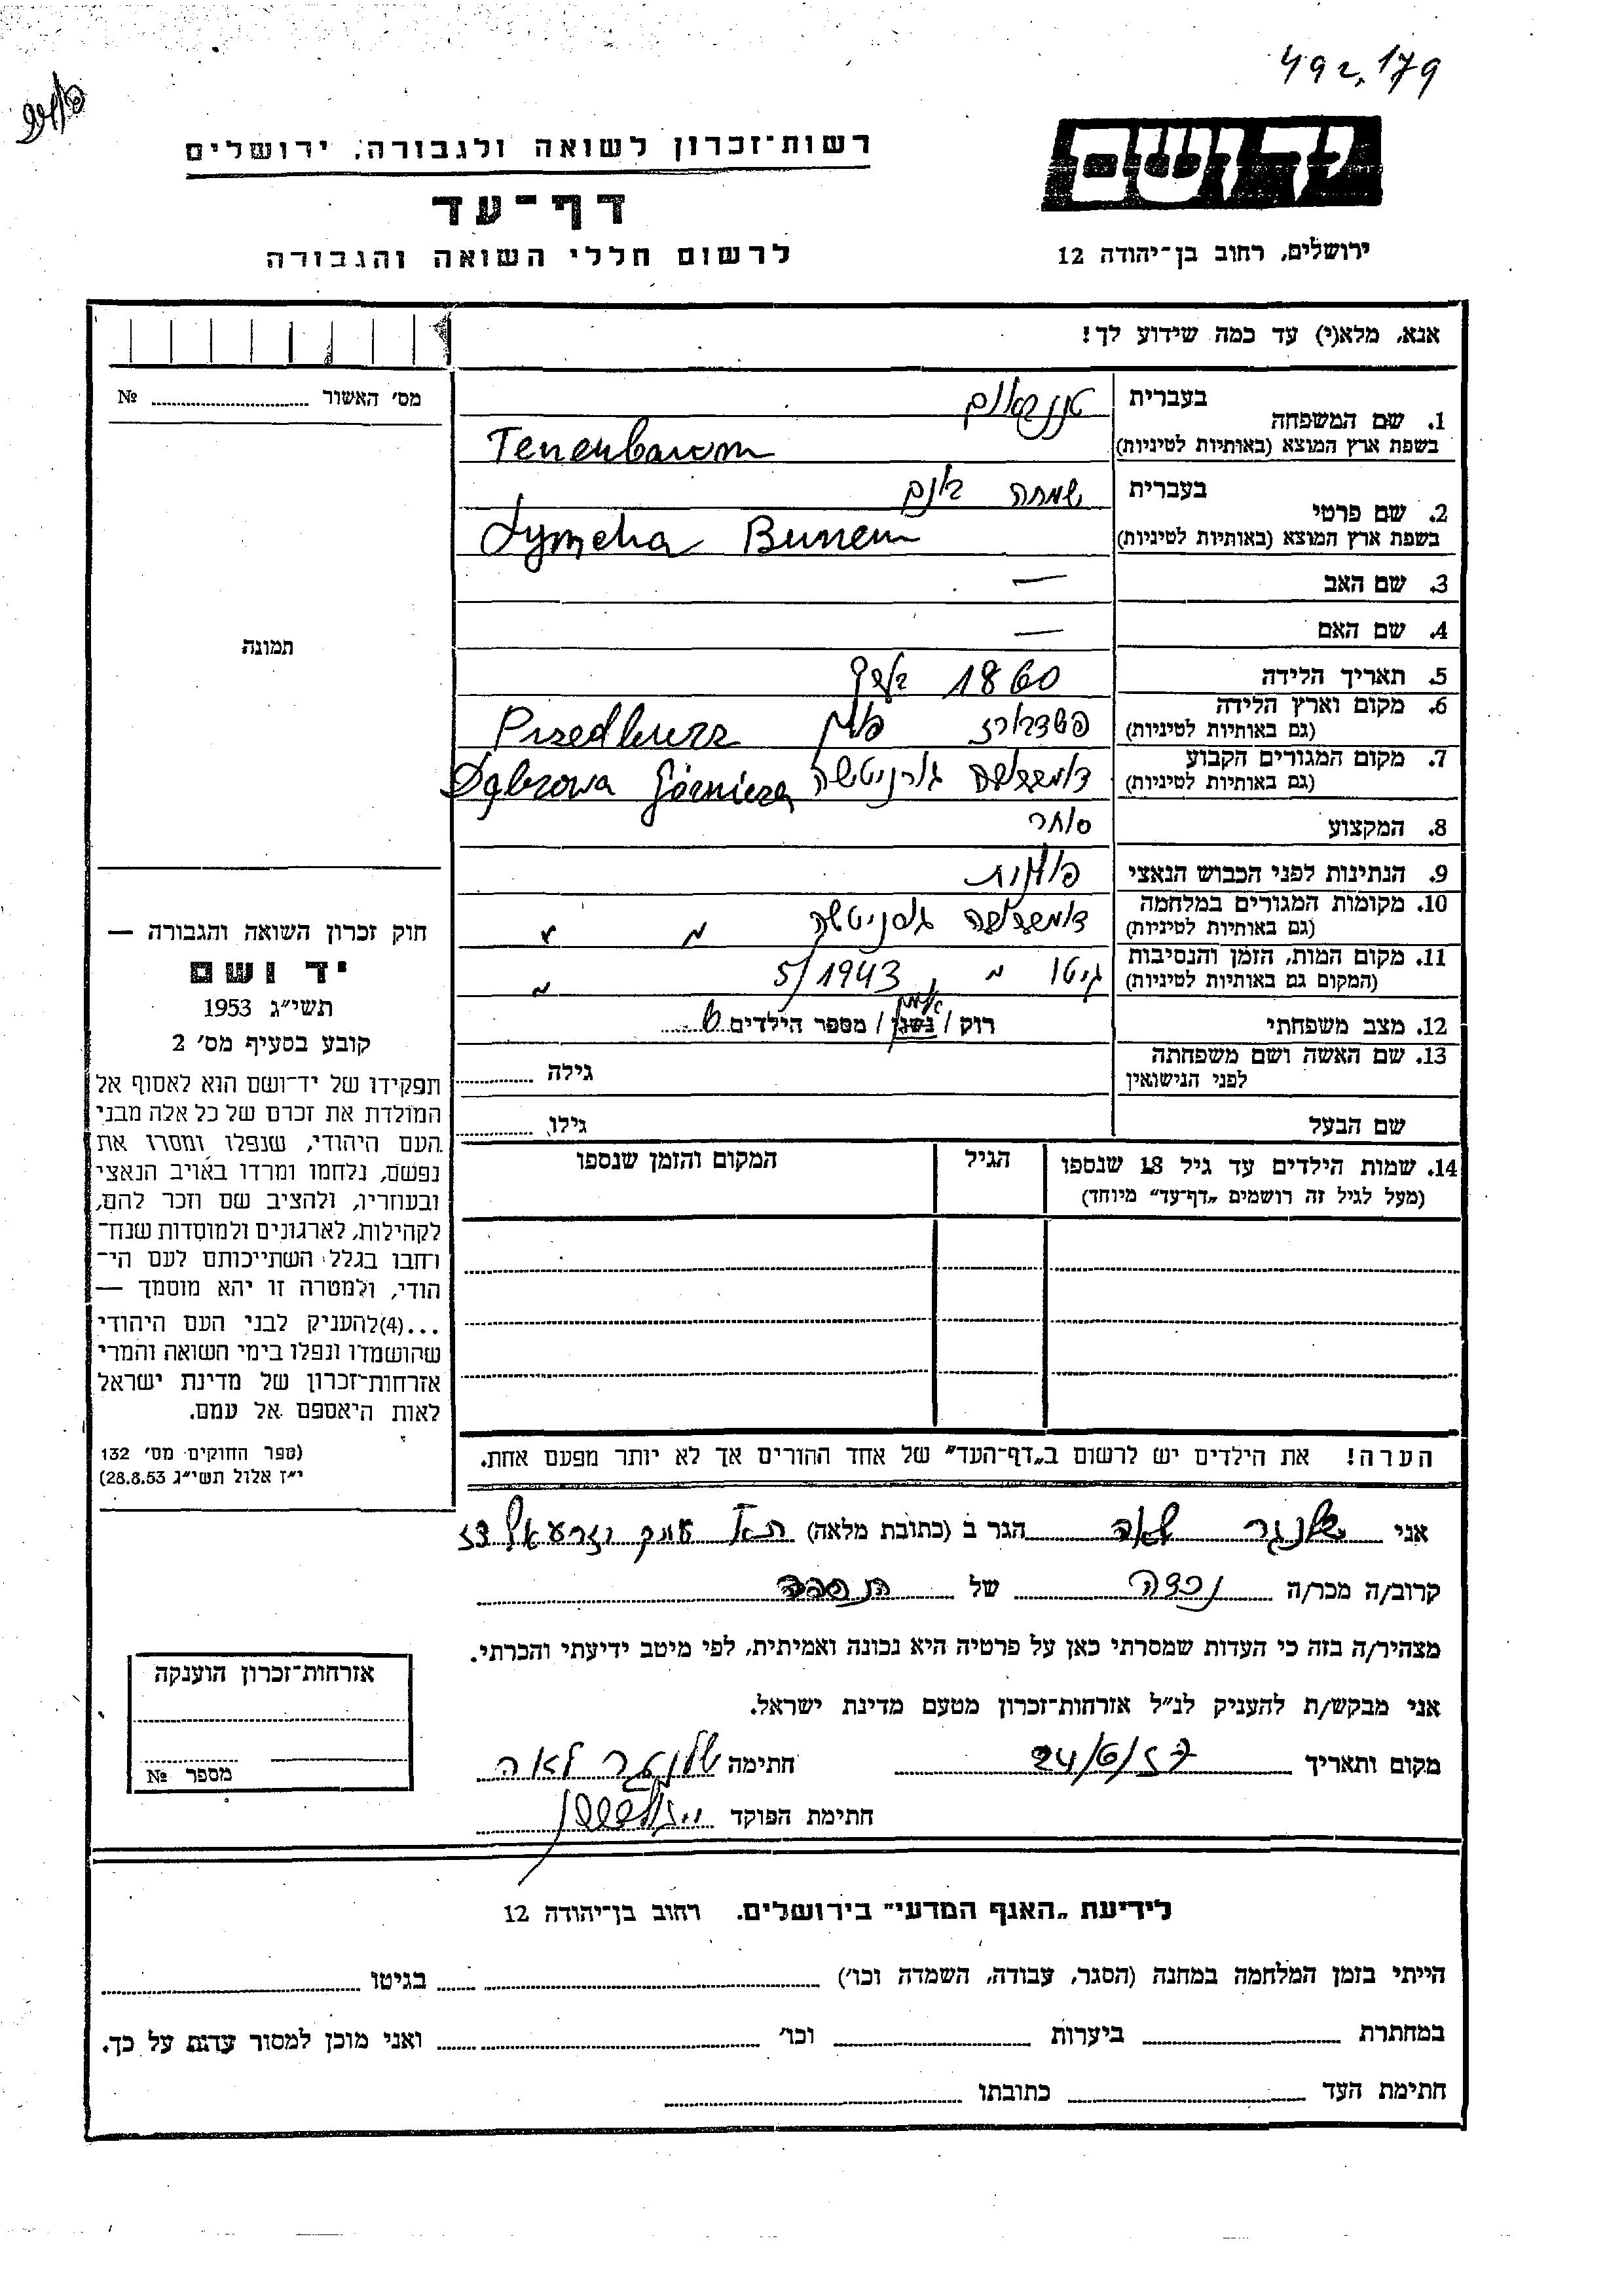 492,179
רשות־זכרון לשואה ולגבורה, ירושלים
יד ושם
דף־עד
לרשום חללי השואה והגבורה
ירושלים, רחוב בן־יהודה 12
אנא, מלא(י) עד כמה שידוע לך!
מס׳ האשור № 
1. שם המשפחה
בעברית
בשפת ארץ המוצא (באותיות לטיניות) Tenenbaum
2. שם פרטי
בעברית שמחה בונם
בשפת ארץ המוצא (באותיות לטיניות) Symcha Bunem
3. שם האב —
4. שם האם —
5. תאריך הלידה 1860 בערך
6. מקום וארץ הלידה
(גם באותיות לטיניות) פולין
7. מקום המגורים הקבוע
(גם באותיות לטיניות) Dąbrowa Górnicza
8. המקצוע סוחר
9. הנתינות לפני הכבוש הנאצי פולנית
10. מקומות המגורים במלחמה
(גם באותיות לטיניות)
11. מקום המות, הזמן והנסיבות
(המקום גם באותיות לטיניות) גיטו 5/1943
12. מצב משפחתי רוק / נשוי / מספר הילדים 6 אלמן
13. שם האשה ושם משפחתה
לפני הנישואין גילה
שם הבעל גילו
14. שמות הילדים עד גיל 18 שנספו הגיל המקום והזמן שנספו
(מעל לגיל זה רושמים „דף־עד״ מיוחד)
הערה! את הילדים יש לרשום ב„דף־העד״ של אחד ההורים אך לא יותר מפעם אחת.
תמונה
חוק זכרון השואה והגבורה —
יד ושם
תשי״ג 1953
קובע בסעיף מס׳ 2
תפקידו של יד־ושם הוא לאסוף אל
המולדת את זכרם של כל אלה מבני
העם היהודי, שנפלו ומסרו את
נפשם, נלחמו ומרדו באויב הנאצי
ובעוזריו, ולהציב שם וזכר להם,
לקהילות, לארגונים ולמוסדות שנח־
רחבו בגלל השתייכותם לעם הי־
הודי, ולמטרה זו יהא מוסמך —
...(4)להעניק לבני העם היהודי
שהושמדו ונפלו בימי השואה והמרי
אזרחות־זכרון של מדינת ישראל
לאות היאספם אל עמם.
(ספר החוקים מס׳ 132
י״ז אלול תשי״ג 28.8.53)
אני שלנגר לאה הגר ב (כתובת מלאה) ת״א עמק יזרעאל
קרוב/ה מכר/ה נכדה של הנספה
מצהיר/ה בזה כי העדות שמסרתי כאן על פרטיה היא נכונה ואמיתית, לפי מיטב ידיעתי והכרתי.
אני מבקש/ת להעניק לנ״ל אזרחות־זכרון מטעם מדינת ישראל.
מקום ותאריך 24/6/57 חתימה שלנגר לאה
חתימת הפוקד
אזרחות־זכרון הוענקה
מספר №
לידיעת „האגף המדעי״ בירושלים. רחוב בן־יהודה 12
הייתי בזמן המלחמה במחנה (הסגר, עבודה, השמדה וכו׳) בגיטו
במחתרת ביערות וכו׳ ואני מוכן למסור עדות על כך.
חתימת העד כתובתו